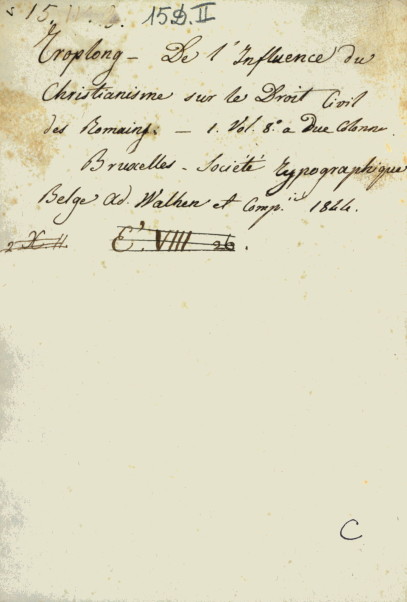 15. 15D.II
Troplong - De l'Influence du
Christianisme sur le Droit Civil
des Romains. - 1. Vol. 8.º a Due Colonne.
Bruxelles - Société Typographique
Belge Ad. Walhen et Comp.ie 1844.
2 X. 11 E' VIII 26.
C